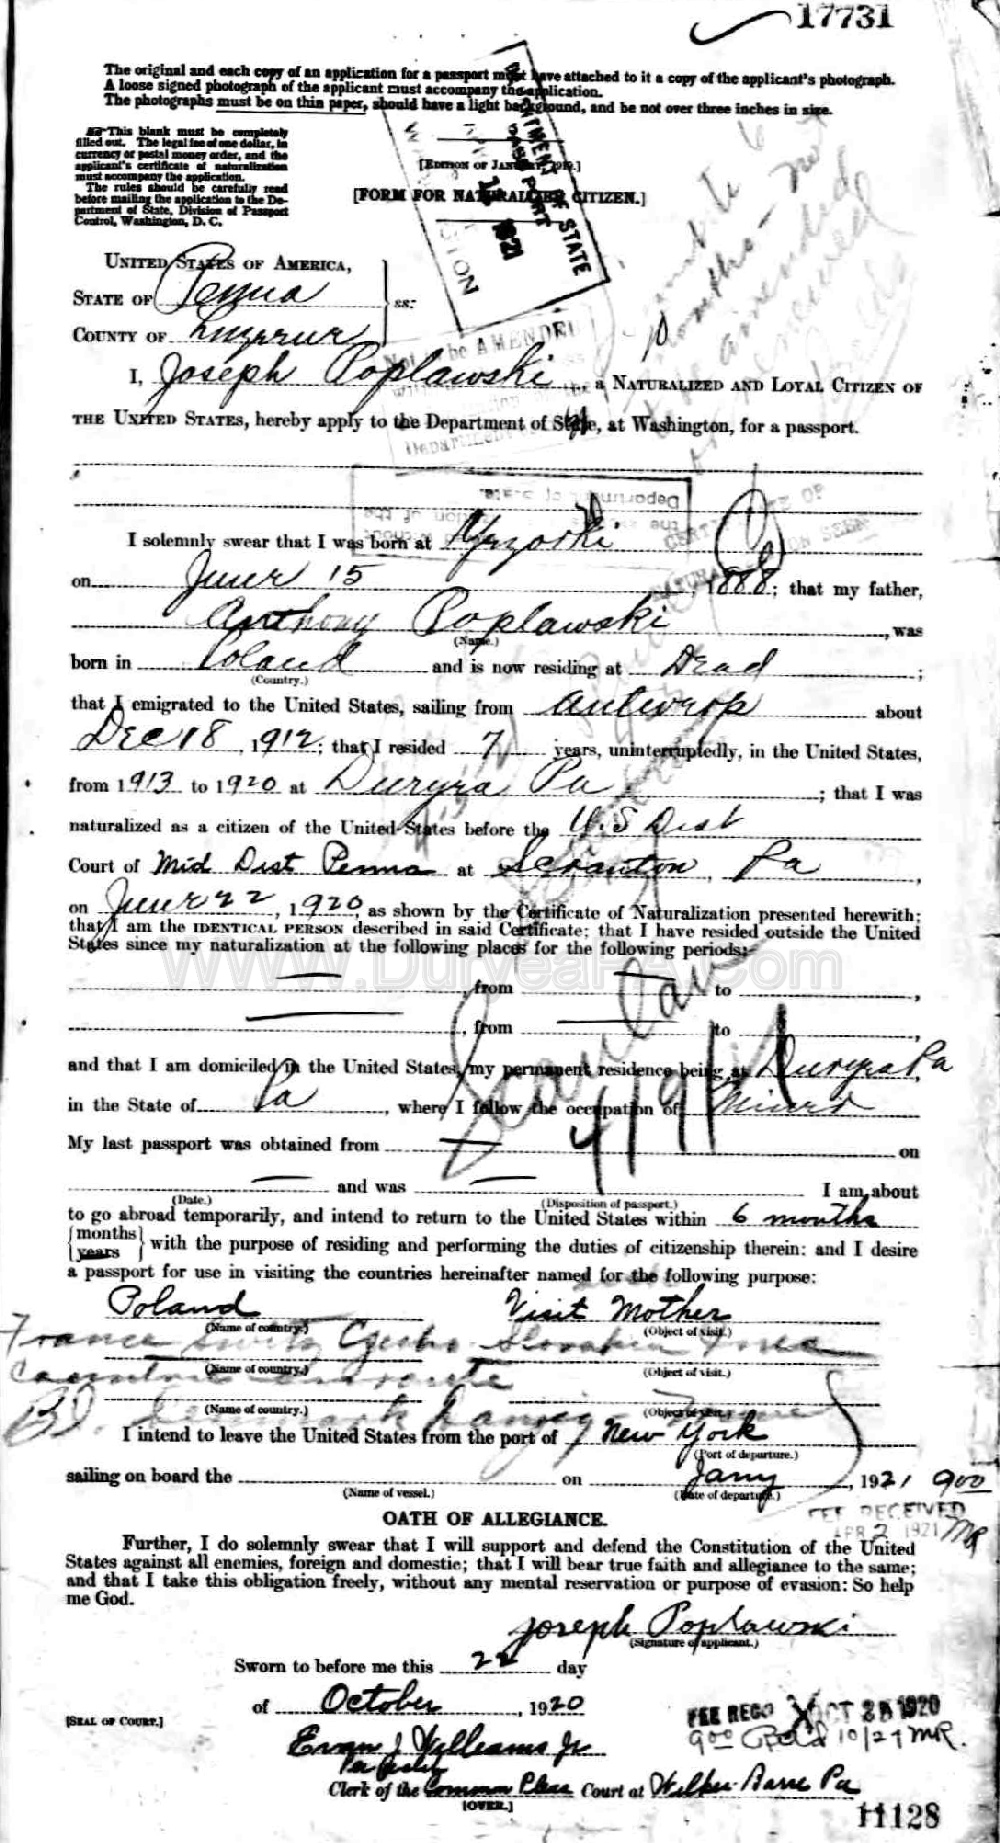 17731
The original and each copy of an application for a passport must have attached to it a copy of the applicant's photograph.
A loose signed photograph of the applicant must accompany the application.
The photographs must be on thin paper, should have a light background, and be not over three inches in size.
This blank must be completely
filled out. The legal fee of one dollar, in
currency or postal money order, and the
applicant's certificate of naturalization
must accompany the application.
The rules should be carefully read
before mailing the application to the De-
partment of State, Division of Passport
Control, Washington, D. C.
DEPARTMENT OF STATE
PASSPORT
1921
[EDITION OF JANUARY, 1919.]
[FORM FOR NATURALIZED CITIZEN.]
UNITED STATES OF AMERICA,
STATE OF Penna
ss:
COUNTY OF Luzerne
Not be AMENDED
I, Joseph Poplawski, a NATURALIZED AND LOYAL CITIZEN OF
THE UNITED STATES, hereby apply to the Department of State, at Washington, for a passport.
I solemnly swear that I was born at
on June 15, 1888; that my father,
Anthony Poplawski, was
(Name.)
born in Poland and is now residing at Dead;
(Country.)
that I emigrated to the United States, sailing from Antwrop about
Dec 18, 1912; that I resided 7 years, uninterruptedly, in the United States,
from 1913 to 1920 at Duryea Pa; that I was
naturalized as a citizen of the United States before the U.S Dist
Court of Mid Dist Penna at Scranton, Pa,
on June 22, 1920, as shown by the Certificate of Naturalization presented herewith;
that I am the IDENTICAL PERSON described in said Certificate; that I have resided outside the United
States since my naturalization at the following places for the following periods:
www.DuryeaPA.com
, from to ,
, from to ,
and that I am domiciled in the United States, my permanent residence being at Duryea Pa
in the State of Pa, where I follow the occupation of Miner
My last passport was obtained from on
and was I am about
(Date.) (Disposition of passport.)
to go abroad temporarily, and intend to return to the United States within 6 months
{months
years} with the purpose of residing and performing the duties of citizenship therein; and I desire
a passport for use in visiting the countries hereinafter named for the following purpose:
Poland Visit Mother
(Name of country.) (Object of visit.)
France Switz Czecho-Slovakia
(Name of country.) (Object of visit.)
en route
(Name of country.) (Object of visit.)
Denmark Danzig
I intend to leave the United States from the port of New York
(Port of departure.)
sailing on board the on Jany, 1921
(Name of vessel.) (Date of departure.)
900
FEE RECEIVED
APR 2 1921 MR
OATH OF ALLEGIANCE.
Further, I do solemnly swear that I will support and defend the Constitution of the United
States against all enemies, foreign and domestic; that I will bear true faith and allegiance to the same;
and that I take this obligation freely, without any mental reservation or purpose of evasion: So help
me God.
Joseph Poplawski
(Signature of applicant.)
Sworn to before me this 22 day
of October, 1920
[SEAL OF COURT.]
FEE RECD OCT 25 1920
900 Rec'd 10/27 MR.
Evan J Williams Jr
Clerk of the Common Pleas Court at Wilkes-Barre Pa
[OVER.]
11128